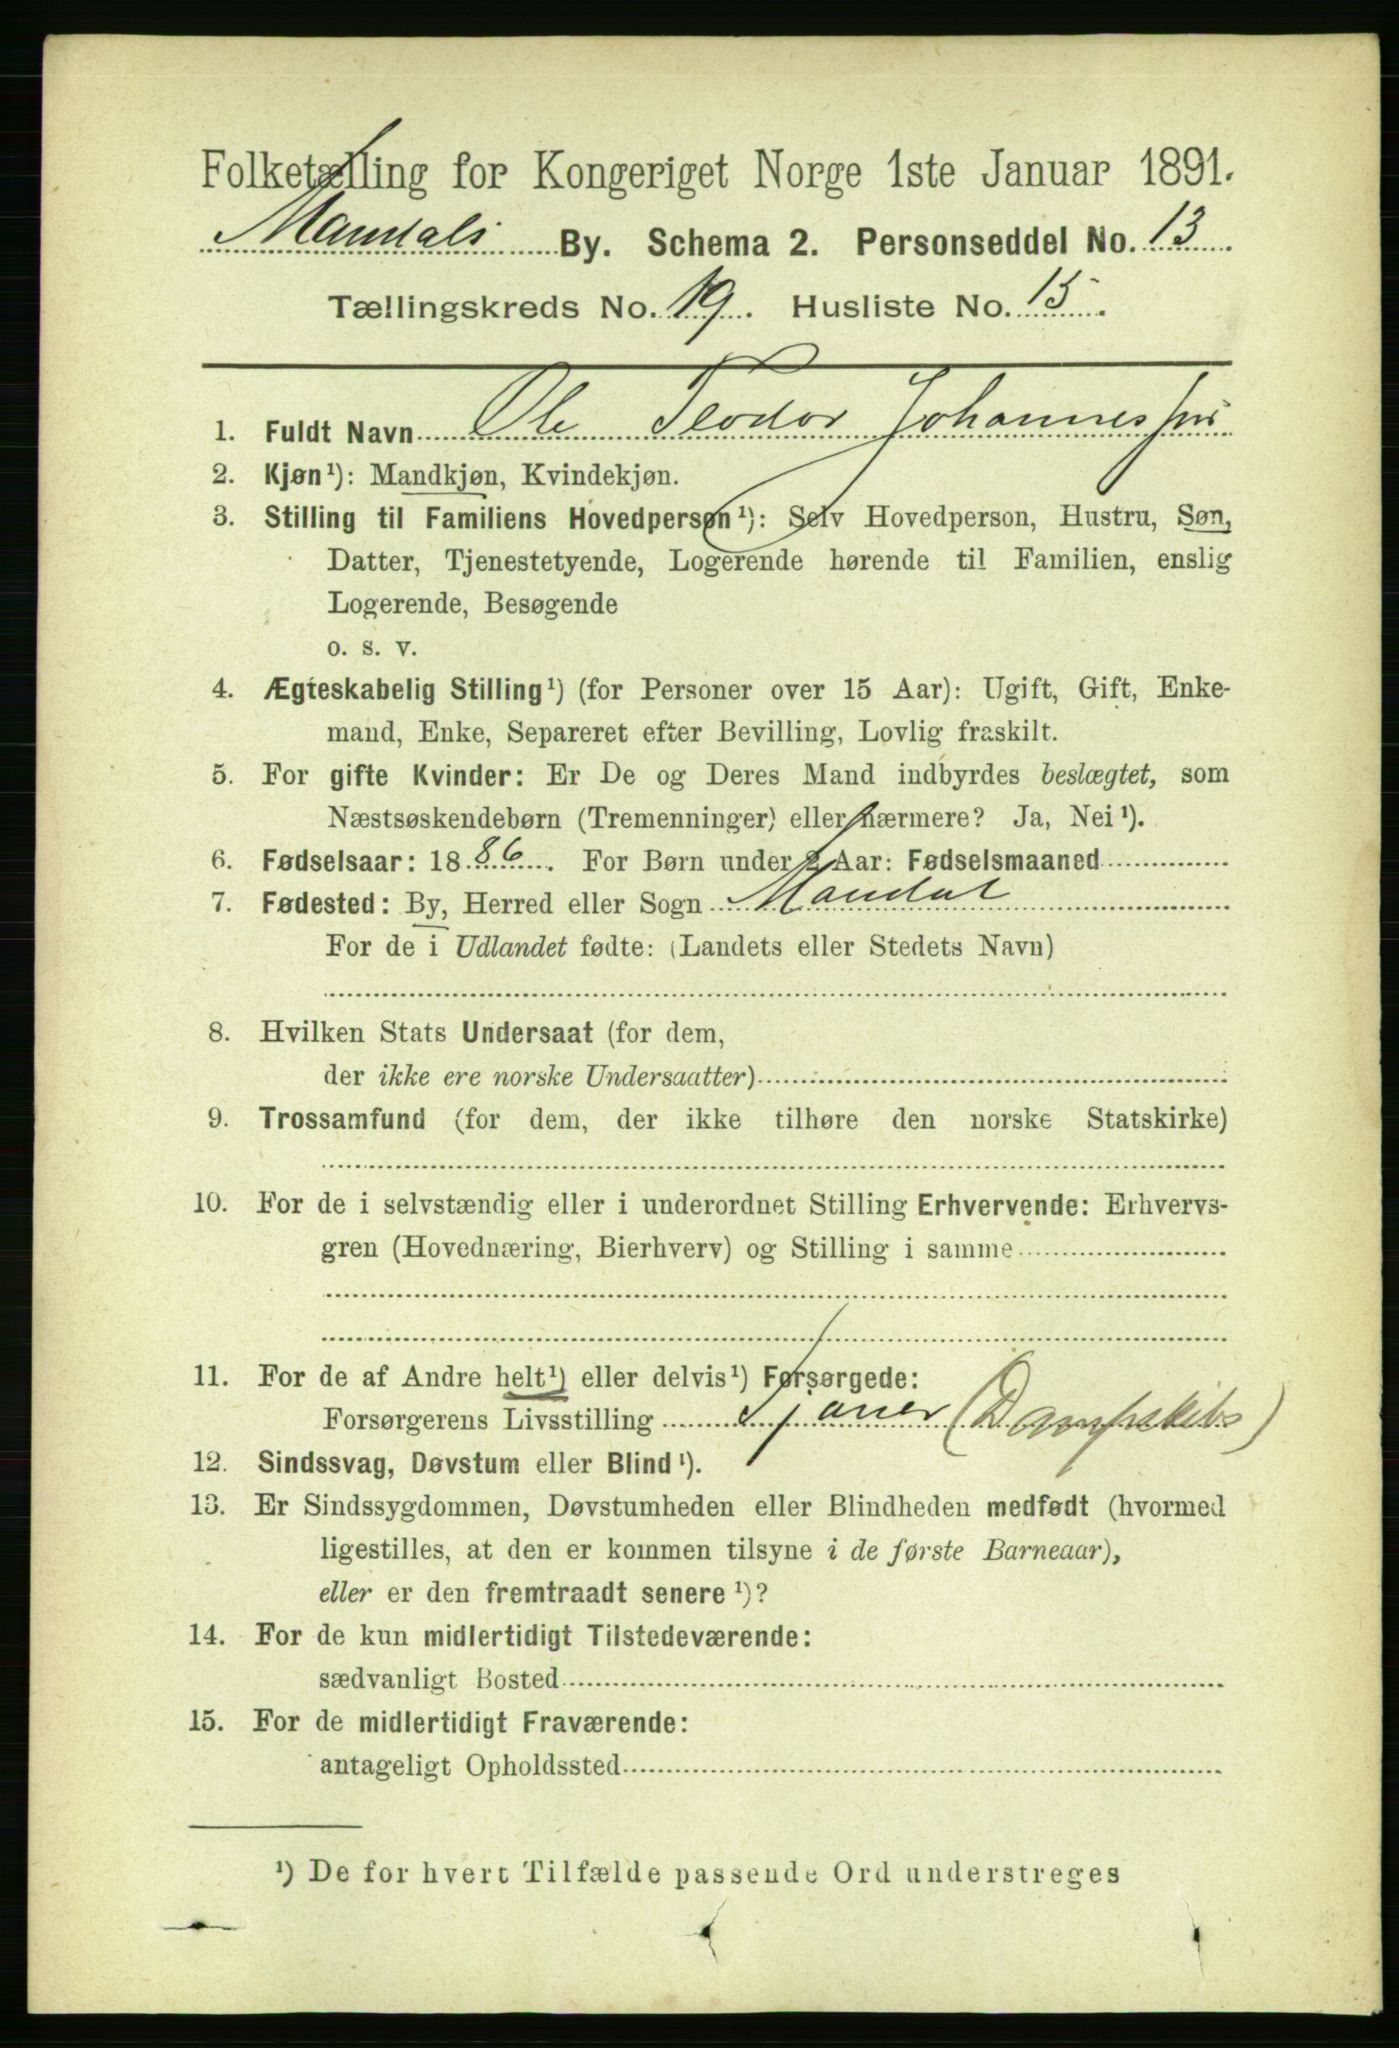 Folketælling for Kongeriget Norge 1ste Januar 1891.
Mandals By. Schema 2. Personseddel No. 13
Tællingskreds No. 19. Husliste No. 15.
1. Fuldt Navn Ole Teodor Johannessen
2. Kjøn¹): Mandkjøn, Kvindekjøn.
3. Stilling til Familiens Hovedperson¹): Selv Hovedperson, Hustru, Søn,
Datter, Tjenestetyende, Logerende hørende til Familien, enslig
Logerende, Besøgende
o. s. v.
4. Ægteskabelig Stilling¹) (for Personer over 15 Aar): Ugift, Gift, Enke-
mand, Enke, Separeret efter Bevilling, Lovlig fraskilt.
5. For gifte Kvinder: Er De og Deres Mand indbyrdes beslægtet, som
Næstsøskendebørn (Tremenninger) eller nærmere? Ja, Nei¹).
6. Fødselsaar: 1886. For Børn under 2 Aar: Fødselsmaaned
7. Fødested: By, Herred eller Sogn Mandal
For de i Udlandet fødte: (Landets eller Stedets Navn)
8. Hvilken Stats Undersaat (for dem,
der ikke ere norske Undersaatter)
9. Trossamfund (for dem, der ikke tilhøre den norske Statskirke)
10. For de i selvstændig eller i underordnet Stilling Erhvervende: Erhvervs-
gren (Hovednæring, Bierhverv) og Stilling i samme
11. For de af Andre helt¹) eller delvis¹) Forsørgede:
Forsørgerens Livsstilling (Dampskibs)
12. Sindssvag, Døvstum eller Blind¹).
13. Er Sindssygdommen, Døvstumheden eller Blindheden medfødt (hvormed
ligestilles, at den er kommen tilsyne i de første Barneaar),
eller er den fremtraadt senere¹)?
14. For de kun midlertidigt Tilstedeværende:
sædvanligt Bosted
15. For de midlertidigt Fraværende:
antageligt Opholdssted
¹) De for hvert Tilfælde passende Ord understreges